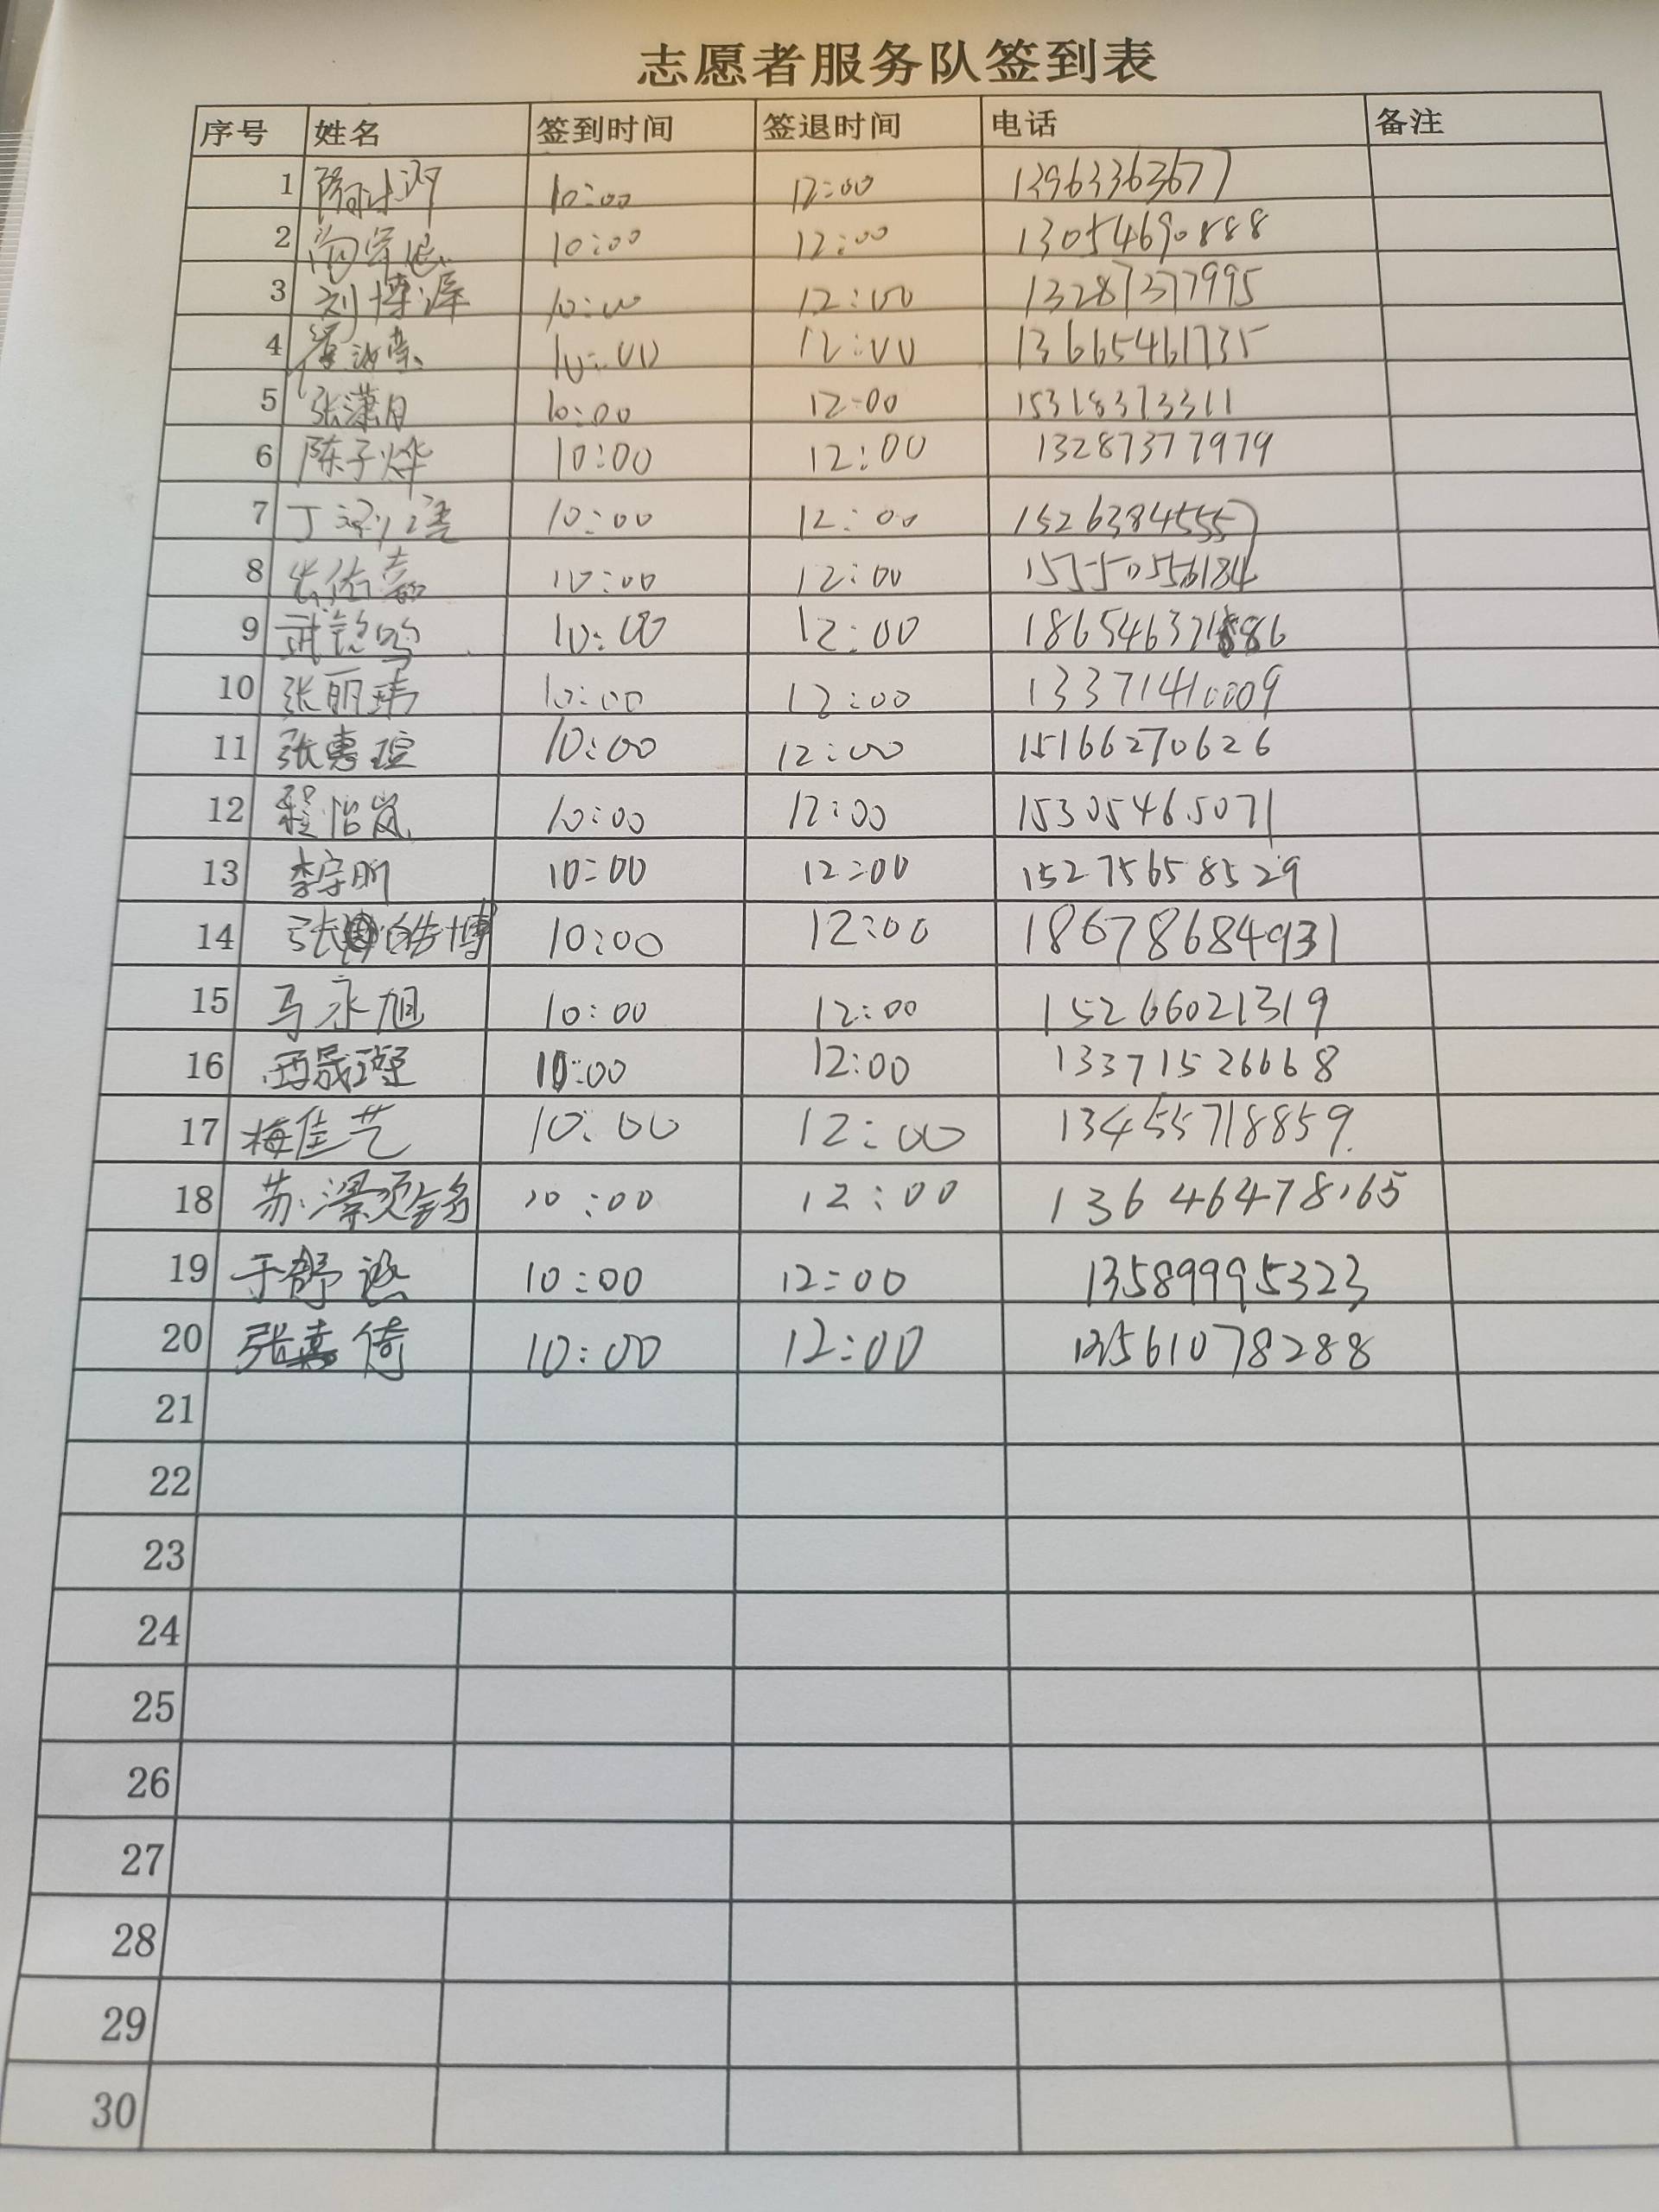 志愿者服务队签到表
序号 姓名 签到时间 签退时间 电话 备注
1 10:00 12:00 13963363677
2 10:00 12:00 13054690888
3 刘博泽 10:00 12:00 13287377995
4 10:00 12:00 13665461735
5 张潇月 10:00 12:00 15318373311
6 陈子烨 10:00 12:00 13287377979
7 丁 10:00 12:00 15263845557
8 佑嘉 10:00 12:00
9 武铭鸣 10:00 12:00
10 张丽玮 10:00 12:00 13371410009
11 张惠瑄 10:00 12:00 15166270626
12 程怡岚 10:00 12:00 15305465071
13 李宗昕 10:00 12:00 15275658529
14 张皓博 10:00 12:00 18678684931
15 马永旭 10:00 12:00 15266021319
16 西晟瑆 10:00 12:00 13371526668
17 梅佳艺 10:00 12:00 13455718859.
18 苏 10:00 12:00 13646478165
19 于舒涵 10:00 12:00 13589995323
20 张嘉倚 10:00 12:00 13561078288
21
22
23
24
25
26
27
28
29
30